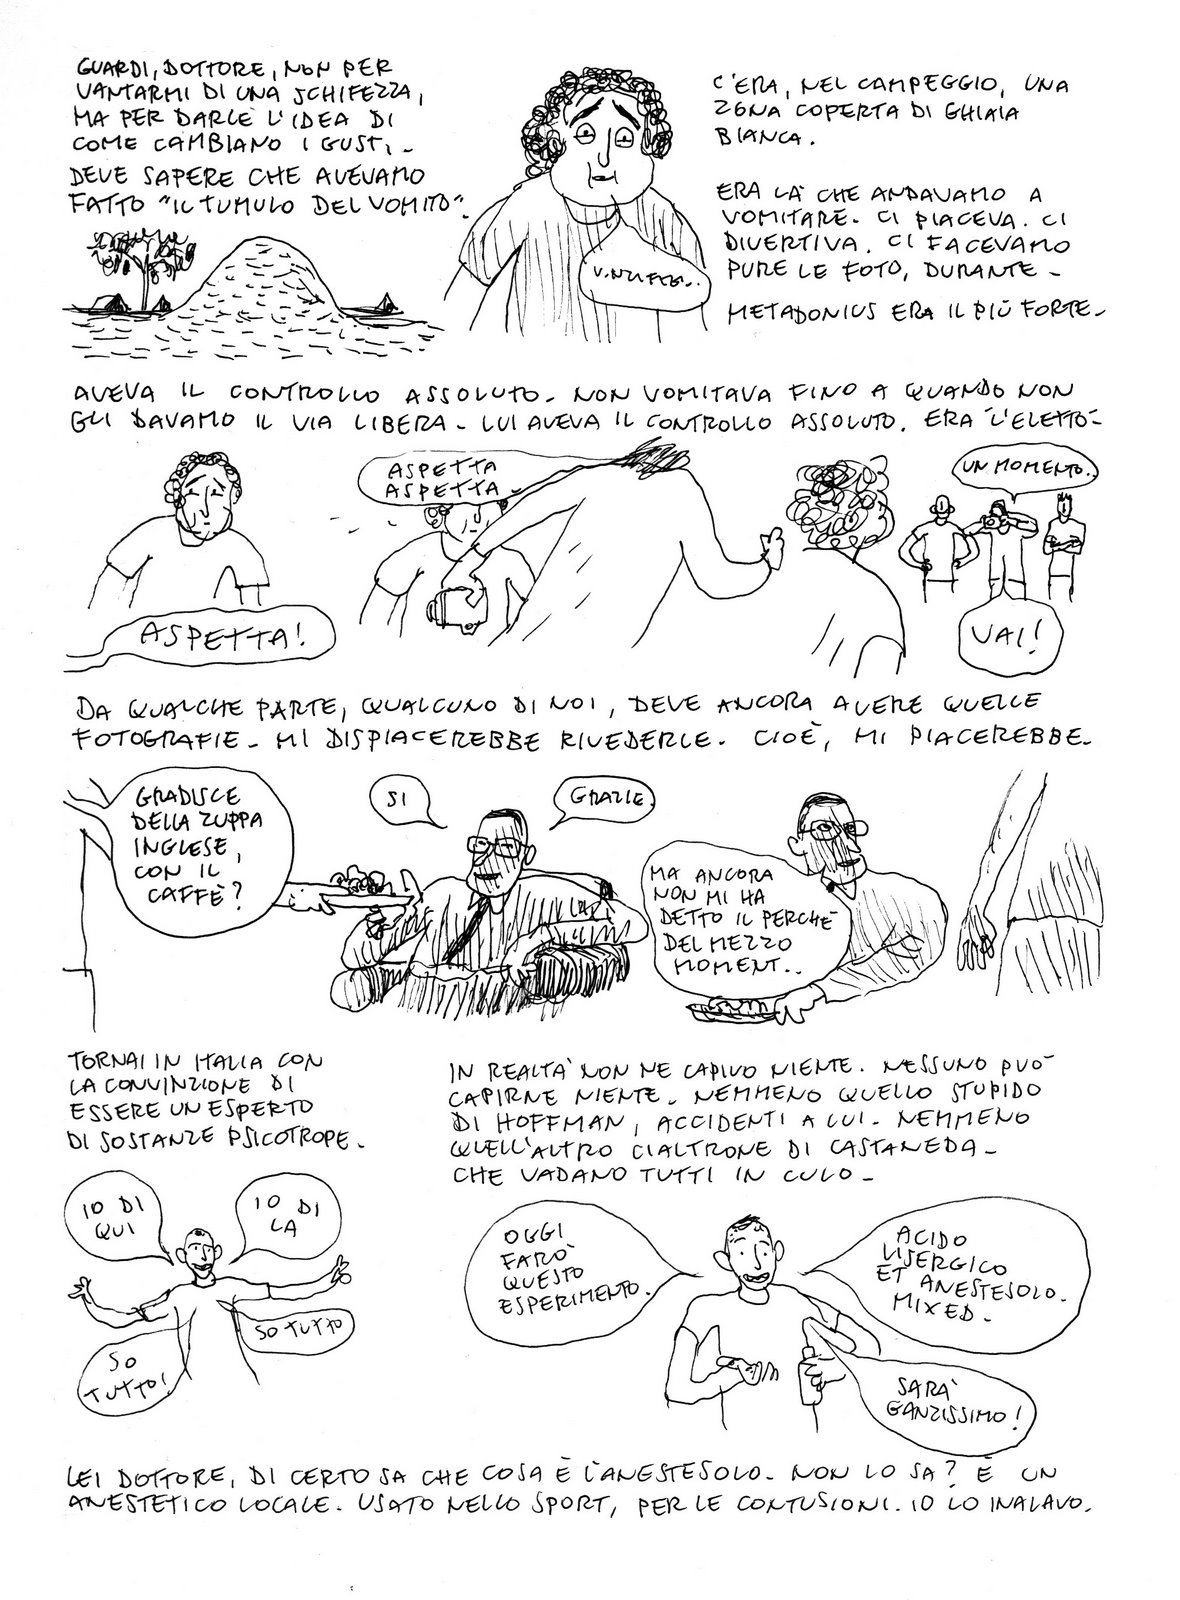 GUARDI, DOTTORE, NON PER
VANTARMI DI UNA SCHIFEZZA,
MA PER DARLE L'IDEA DI
COME CAMBIANO I GUSTI -
DEVE SAPERE CHE AVEVAMO
FATTO "IL TUMULO DEL VOMITO".
C'ERA, NEL CAMPEGGIO, UNA
ZONA COPERTA DI GHIAIA
BIANCA.
ERA LÀ CHE ANDAVAMO A
VOMITARE. CI PIACEVA. CI
DIVERTIVA. CI FACEVAMO
PURE LE FOTO, DURANTE -
METADONIUS ERA IL PIÙ FORTE -
AVEVA IL CONTROLLO ASSOLUTO - NON VOMITAVA FINO A QUANDO NON
GLI DAVAMO IL VIA LIBERA - LUI AVEVA IL CONTROLLO ASSOLUTO. ERA "L'ELETTO" -
ASPETTA!
ASPETTA
ASPETTA -
UN MOMENTO.
VAI!
DA QUALCHE PARTE, QUALCUNO DI NOI, DEVE ANCORA AVERE QUELLE
FOTOGRAFIE - MI DISPIACEREBBE RIVEDERLE. CIOÈ, MI PIACEREBBE.
GRADISCE
DELLA ZUPPA
INGLESE,
CON IL
CAFFÈ?
SI
GRAZIE.
MA ANCORA
NON MI HA
DETTO IL PERCHÉ
DEL MEZZO
MOMENT..
TORNAI IN ITALIA CON
LA CONVINZIONE DI
ESSERE UN ESPERTO
DI SOSTANZE PSICOTROPE -
IO DI
QUI
IO DI
LA
SO
TUTTO!
SO TUTTO
IN REALTÀ NON NE CAPIVO NIENTE. NESSUNO PUÒ
CAPIRNE NIENTE. NEMMENO QUELLO STUPIDO
DI HOFFMAN, ACCIDENTI A LUI. NEMMENO
QUELL'ALTRO CIALTRONE DI CASTANEDA -
CHE VADANO TUTTI IN CULO -
OGGI
FARÒ
QUESTO
ESPERIMENTO.
ACIDO
LISERGICO
ET ANESTESOLO.
MIXED -
SARÀ
GANZISSIMO!
LEI DOTTORE, DI CERTO SA CHE COSA È L'ANESTESOLO - NON LO SA? È UN
ANESTETICO LOCALE. USATO NELLO SPORT, PER LE CONTUSIONI. IO LO INALAVO.